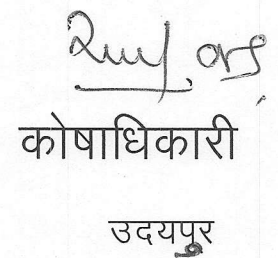 कोषाधिकारी
उदयपुर